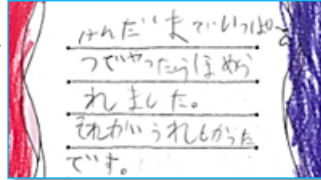 けんだまでいっぱ
つでやったらほめら
れました。
それがうれしかった
です。